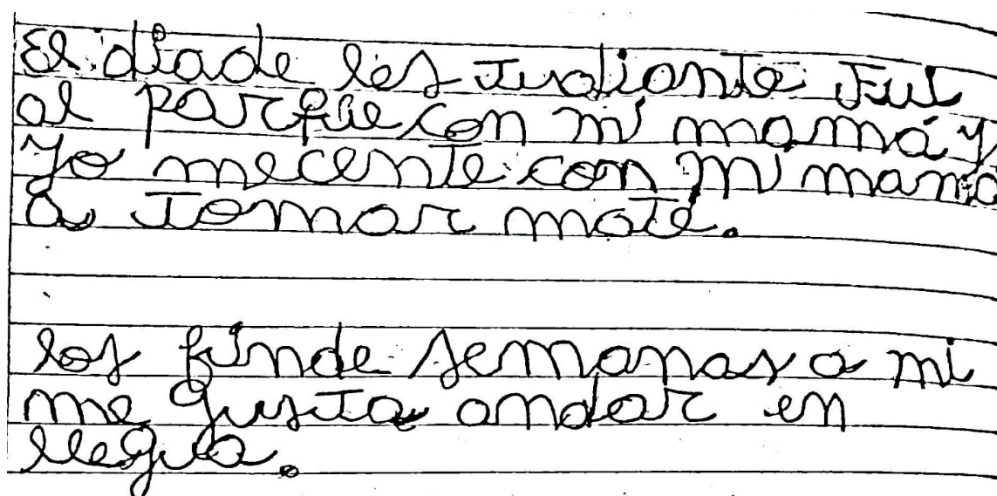 El diade les tudiante fui
al parque con mi mamá y
yo mecente con mi mamá
a tomar mate.
los finde semanas a mi
me gusta andar en
llegua.